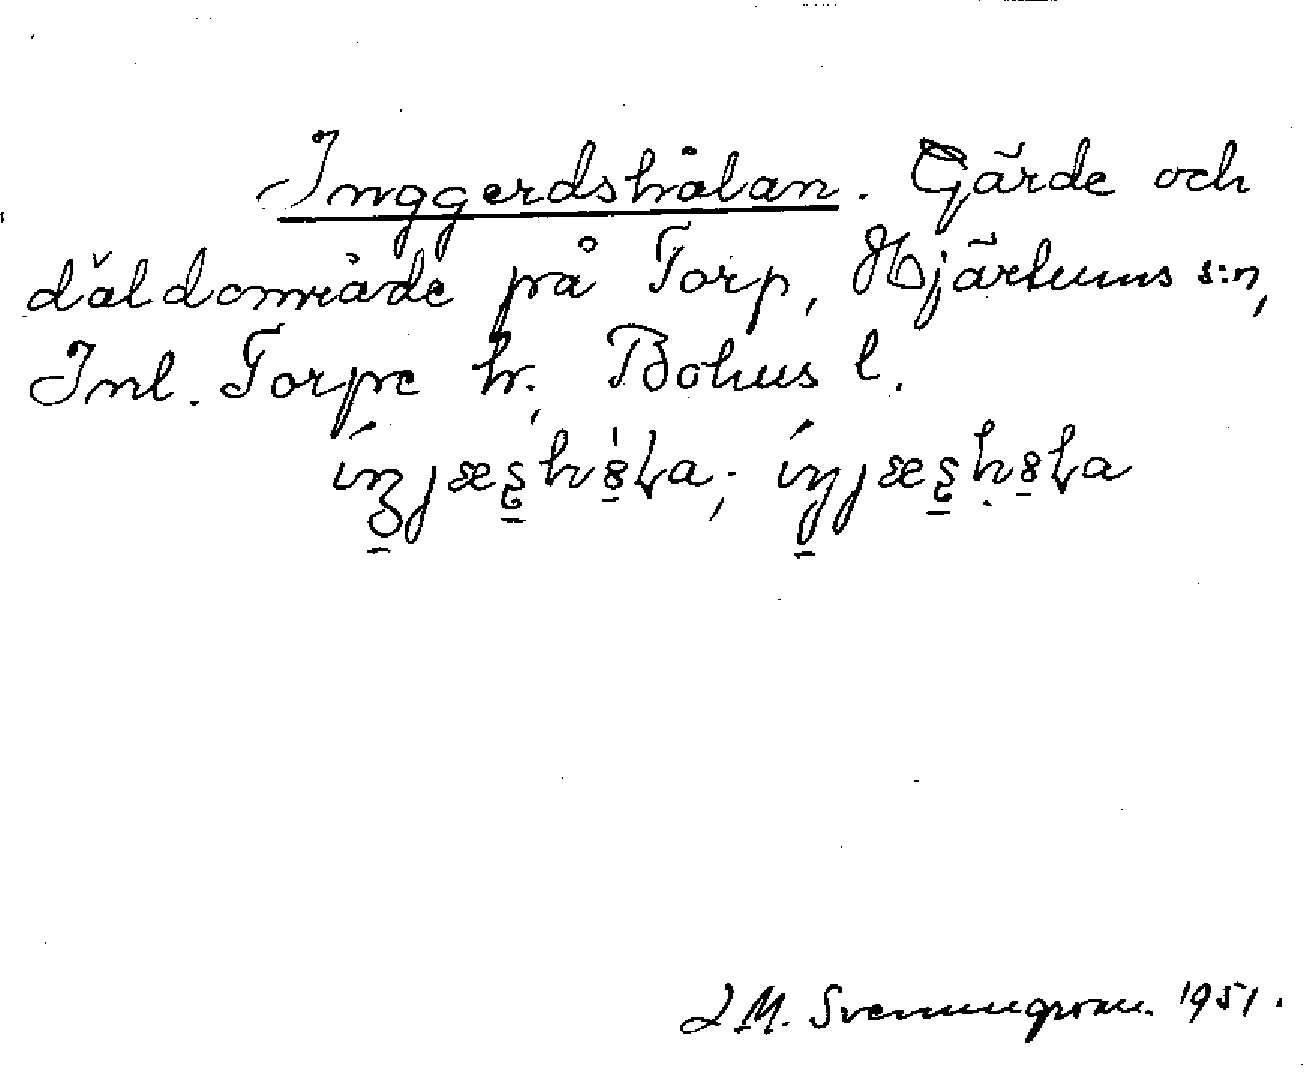 Inggerdshålan. Gärde och
däldområde på Torp, Hjärtums s:n,
Inl. Torpe hr, Bohus l.
J M. Svenungsson. 1951.